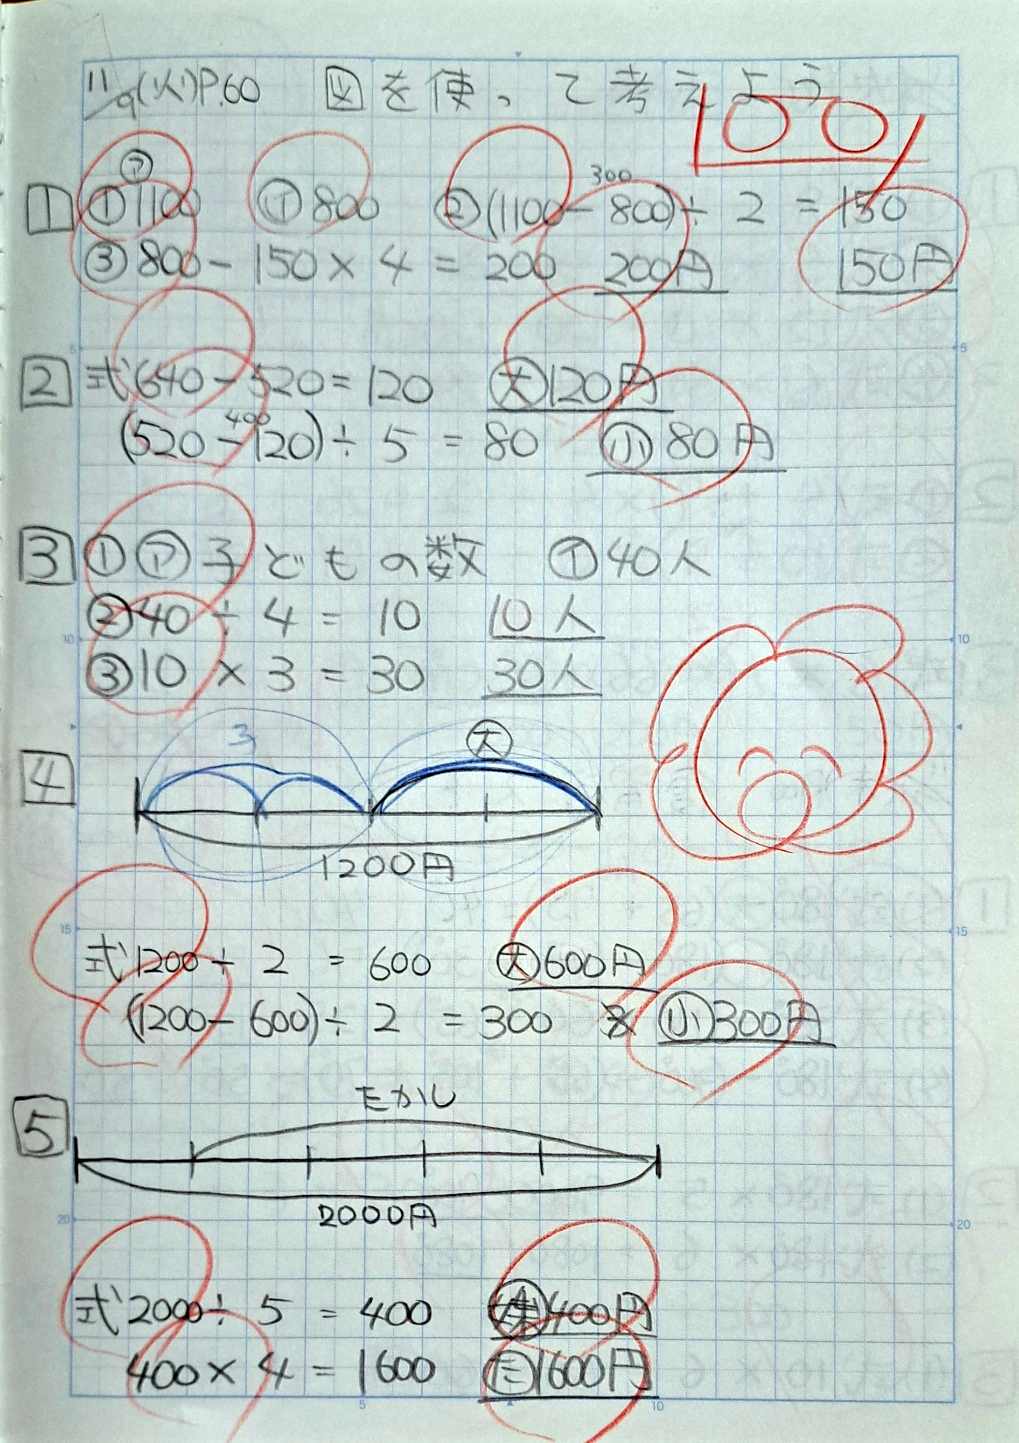 11/9(火)P.60 図を使って考えよう
100
㋐
1 ①1100 ㋑800 ②(1100-800)÷2=150
300
③800-150×4=200 200円 150円
2 式640-520=120 大120円
400
(520-120)÷5=80 小80円
3 ①㋐子どもの数 ㋑40人
②40÷4=10 10人
③10×3=30 30人
4 3 大
1200円
式1200÷2=600 大600円
(1200-600)÷2=300 小300円
5
2000円
式2000÷5=400 400円
400×4=1600 1600円
5 10 15 20
5 10 15 20
5 10